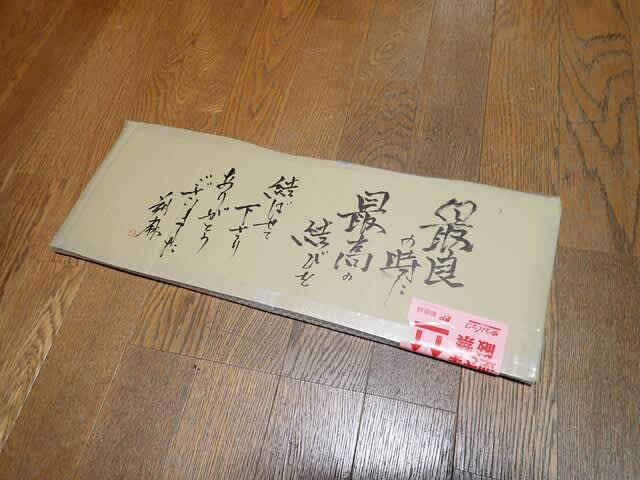 最良
の時に
最高の
結びを
結ばせて
下さり
ありがとう
ございました
ゆうパック
厳禁